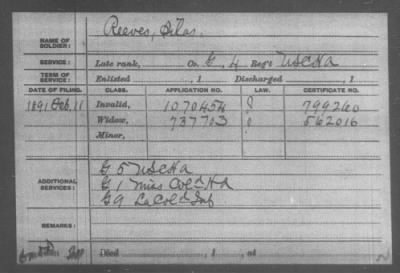 NAME OF SOLDIER: Reeves, Silas
SERVICE: Late rank, Co. G, 4 Reg't U S C H A
TERM OF SERVICE: Enlisted , 1 Discharged , 1
DATE OF FILING. CLASS. APPLICATION NO. LAW. CERTIFICATE NO.
1891 Feb. 11 Invalid, 1070454 799260
Widow, 737703 562016
Minor,
ADDITIONAL SERVICES: G 5 U S C H A
G 1 Miss Col'd H A
G 9 La Col'd Inf
REMARKS:
Died , 1 , at